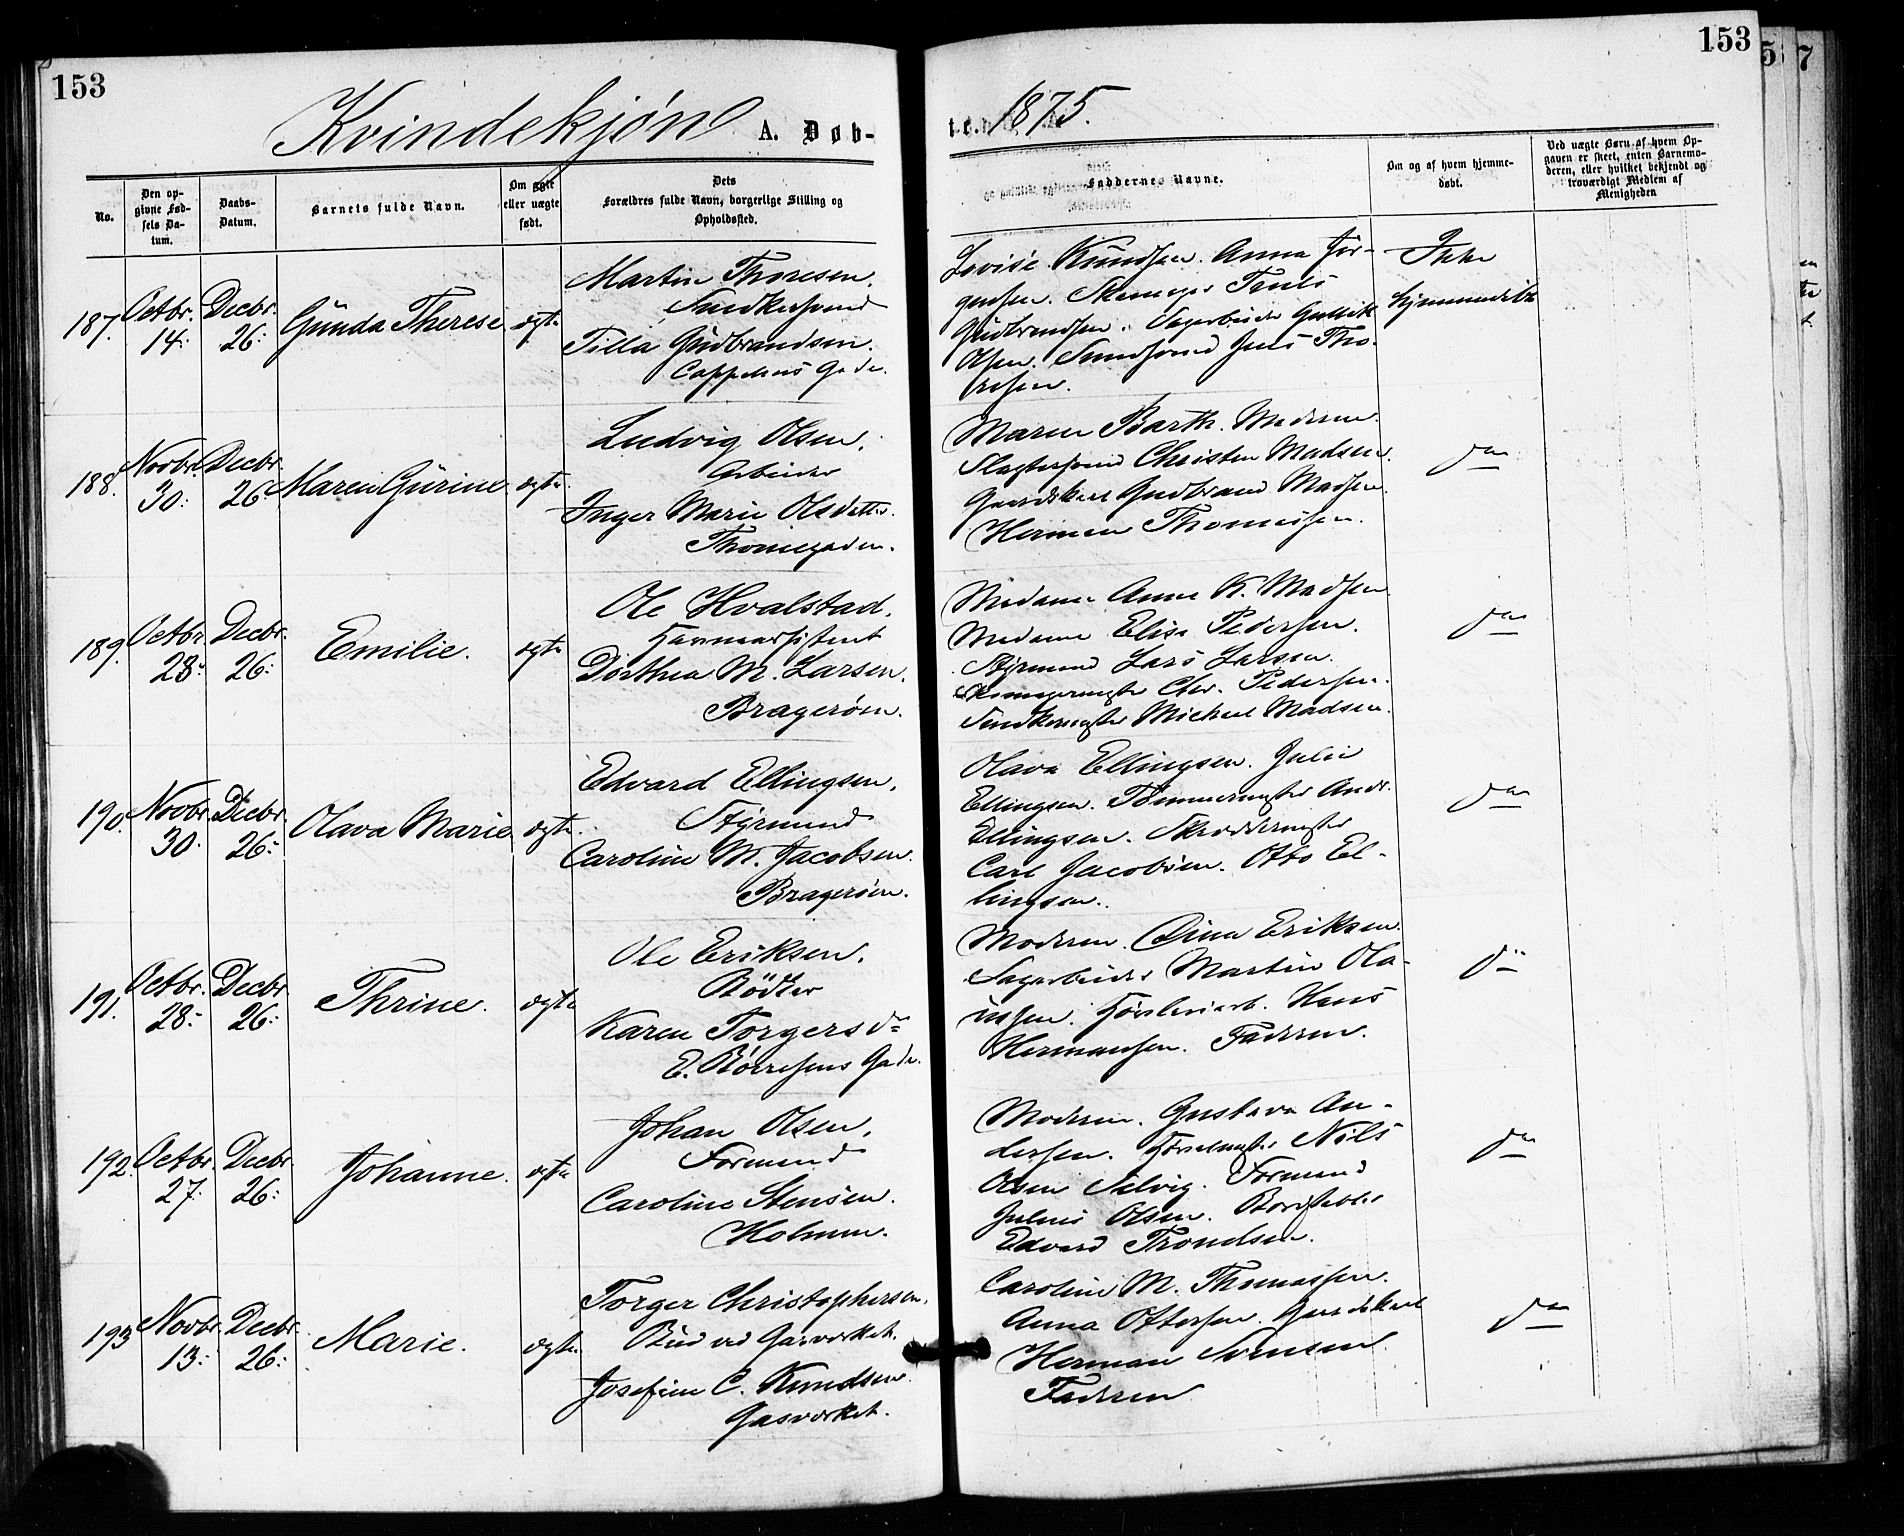 153
Kvindekjøn A. Døb-
No.
Den op-
givne Fød-
sels Da-
tum.
Daabs-
Datum.
Barnets fulde Navn.
Om ægte
eller uægte
født.
Dets
Forældres fulde Navn, borgerlige Stilling og
Opholdssted.
187. Octbr. 14. Decbr. 26. Gunda Therese ægte
Martin Thoresen.
Snedkersvend
Tilla Gudbrandsen.
Cappelens Gade.
188. Novbr. 30. Decbr. 26 Maren Gurine ægte
Ludvig Olsen.
Arbeider
Inger Marie Olsdatter.
Thornegaden.
189. Octbr 28. Decbr. 26. Emilie. ægte
Ole Hvalstad.
Havneassistent
Dorthea M. Larsen.
Bragerøen.
190. Novbr. 30. Decbr. 26. Olava Marie ægte.
Edvard Ellingsen.
Styrmand
Caroline M. Jacobsen.
Bragerøen.
191. Octbr. 28. Decbr. 26. Thrine. ægte
Ole Eriksen.
Bødker
Karen Torgersd.
E. Børresens Gade.
192. Octbr. 27. Decbr. 26. Johanne. ægte
Johan Olsen.
Formand
Caroline Stensen.
Holmen.
193 Novbr. 13. Decbr. 26. Marie. ægte.
Torger Christophersen.
Bud ved Gasværket.
Josefine C. Knudsen.
Gasværket.
153
1875.
Faddernes Navne.
Om og af hvem hjemme-
døbt.
Ved uægte Børn af hvem Op-
gaven er skeet, enten Barnemo-
deren, eller hvilket bekjendt og
troværdigt Medlem af
Menigheden
Lovise Knudsen. Anna Jør- Ikke
gensen. Skomager Tenis hjemmedøbt
Gudbrandsen. Sagarbeider Gullik
Olsen. Svend Jens Tho-
resen.
Maren Barth. Moderen.
Slagtersvend Christen Madsen. do
Gaardskarl Gudbrand Madsen.
Herman Thomassen.
Madame Anne K. Madsen
Madame Elise Pedersen. do
Styrmand Lars Larsen.
Skomagermester Chr. Pedersen.
Snedkermester Michael Madsen.
Olava Ellingsen. Julie
Ellingsen. Tømmermester Andr. do
Ellingsen. Skreddermester
Carl Jacobsen. Otto El-
lingsen.
Moderen. Dina Eriksen
Sagarbeider Martin Ola- do
ussen. Hans
Hermansen. Faderen.
Moderen. Gustava An-
dersen. Nils do
Olsen Selvig. Formand
Julius Olsen.
Edvard Trondsen.
Caroline M. Thomassen.
Anna Ottersen. Gaardskarl do
Herman Svensen.
Faderen